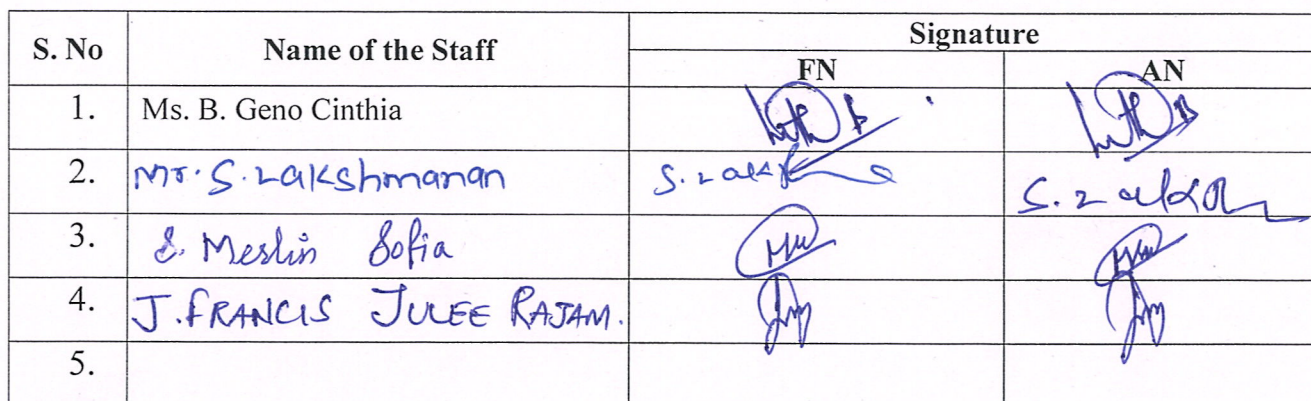 S. No Name of the Staff Signature
FN AN
1. Ms. B. Geno Cinthia
2. Mr. S. Lakshmanan S. Lak S. Lak
3. S. Meslin Sofia
4. J. FRANCIS JULEE RAJAM.
5.